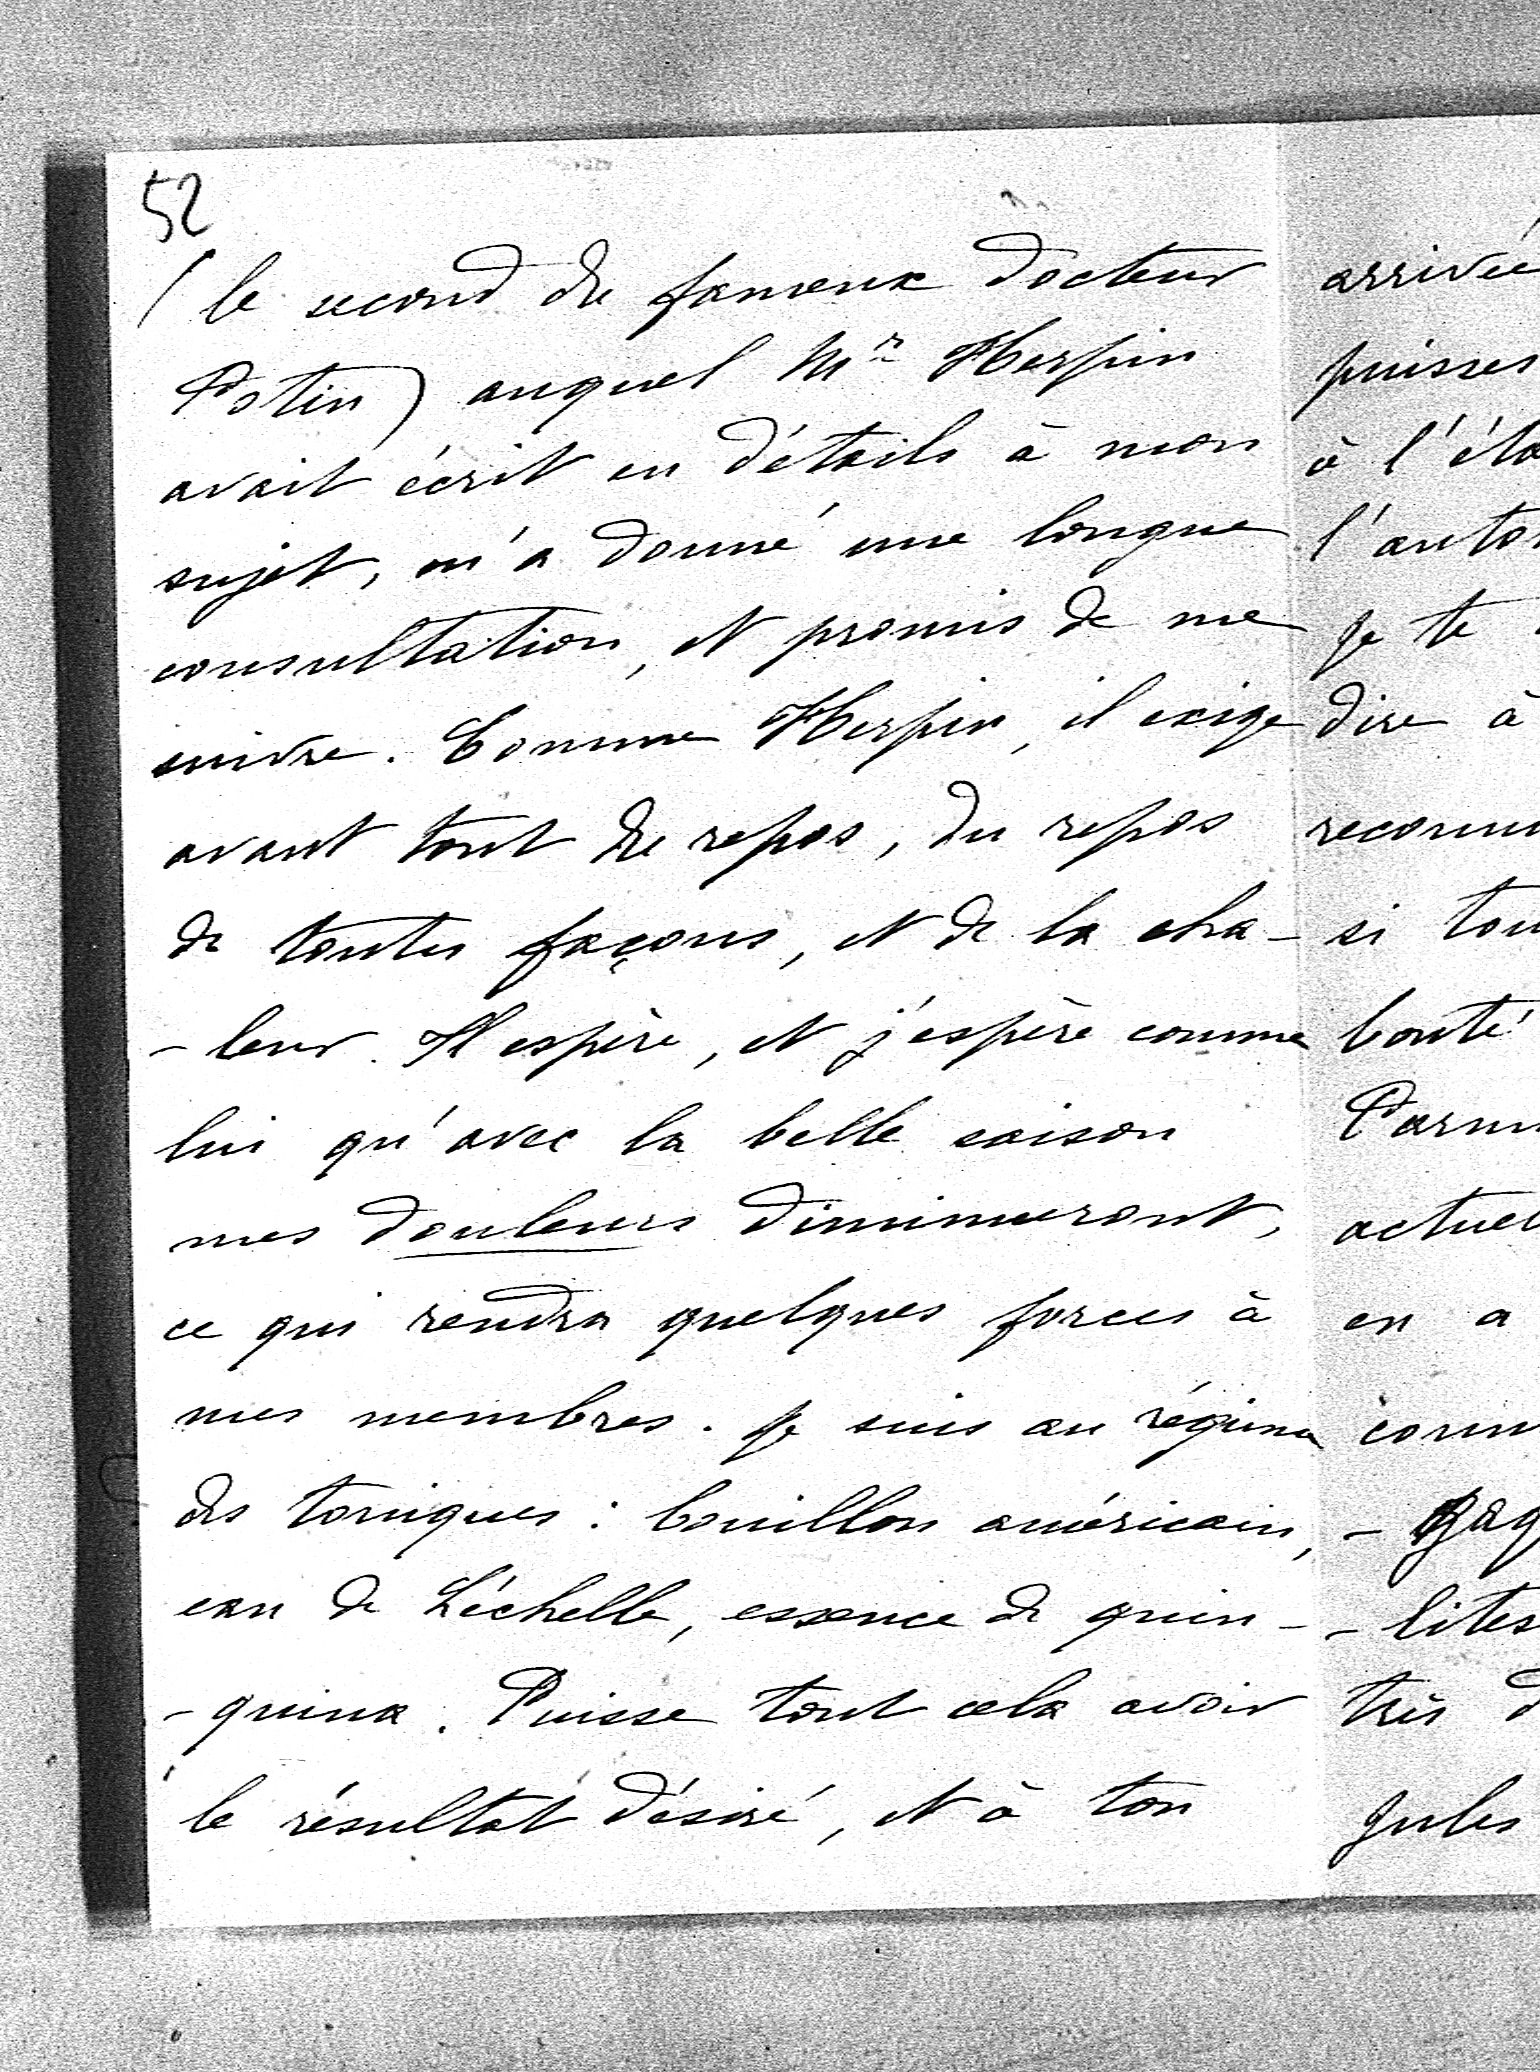 52
(le second du fameux docteur
Potin) auquel Mr Herpin
avait écrit en détails à mon
sujet, m'a donné une longue
consultation, et promis de me
suivre. Comme Herpin, il exige
avant tout du repos, du repos
de toutes façons, et de la cha-
-leur. Il espère, et j'espère comme
lui qu'avec la belle saison
mes douleurs diminueront,
ce qui rendra quelques forces à
mes membres. Je suis au régime
des toniques : bouillon américain,
eau de Léchelle, essence de quin-
-quina. Puisse tout cela avoir
le résultat désiré, et à ton
arrivée
puisses
à l'éta
l'auto
je te
dire à
reconn
si tou
bonté
Parm
actuel
en a
conn
- gag
- lites
très d
Jules